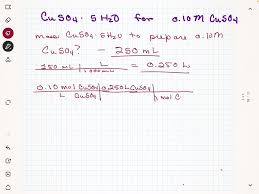 CuSO4 · 5H2O for 0.10M CuSO4
mass CuSO4 · 5H2O to prepare 0.10M
CuSO4? - 250 mL
250 mL | L = 0.250 L
1000 mL
0.10 mol CuSO4 | 0.250 L CuSO4
L CuSO4 | mol C